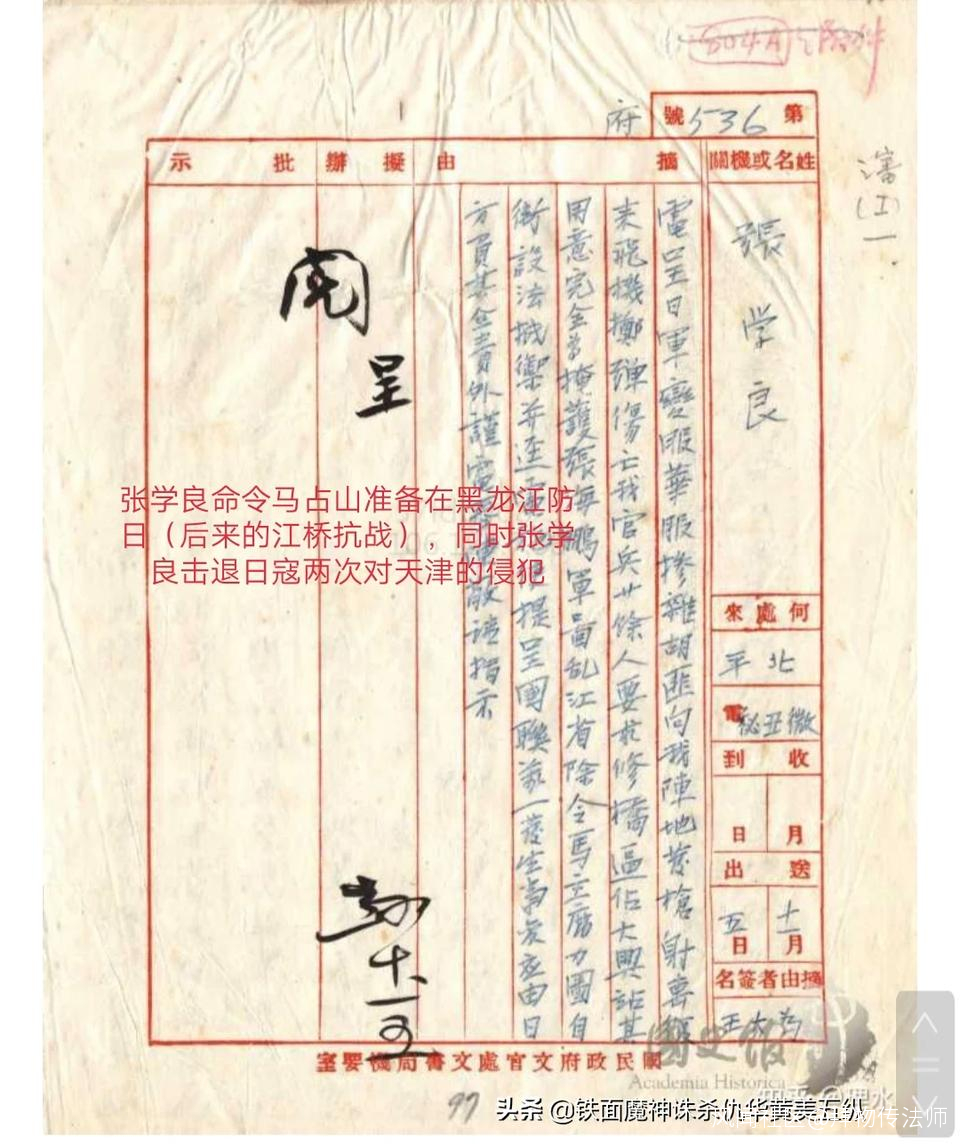 804A
附件
第536號
府
姓名或機關
摘由
擬辦
批示
張学良
瀋(I)一
電呈日軍變服華服摻雜胡匪向我陣地發槍射擊
来飛機擲彈傷亡我官兵廿餘人要求修橋逼佔大興站其
用意完全為掩護張海鵬軍亂江省除令馬主席力圖自
衛設法抵禦并逕電提呈國聯萬一發生事變应由日
方負其全責外謹電敬請指示
何處來
北平
微丑秘電
收到
月
日
送出
十一月
五日
摘由者簽名
王大为
閱
呈
十一 五
國民政府文官處文書局機要室
97
张学良命令马占山准备在黑龙江防
日（后来的江桥抗战），同时张学
良击退日寇两次对天津的侵犯
國史館
Academia Historica
知乎 @理水
头条 @铁面魔神诛杀仇华葉美五纵